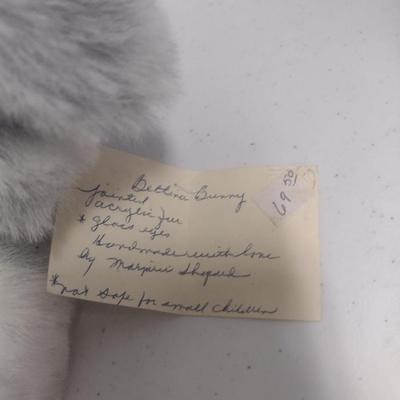 Bettina Bunny
jointed
acrylic fur
* glass eyes
Handmade with love
by Marjorie Shepard
*not safe for small children
69.50